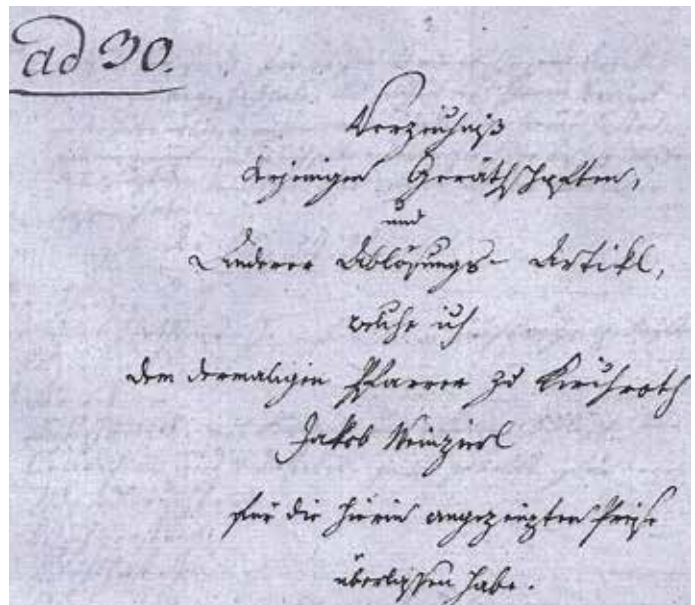 ad 30.
Verzeichniß
derjenigen Geräthschaften,
und
anderer Ablösungs- Artikl,
welche ich
dem dermaligen Pfarrer zu Kirchroth
Jakob Weinzierl
für die hierin angezeigten Preise
überlassen habe.